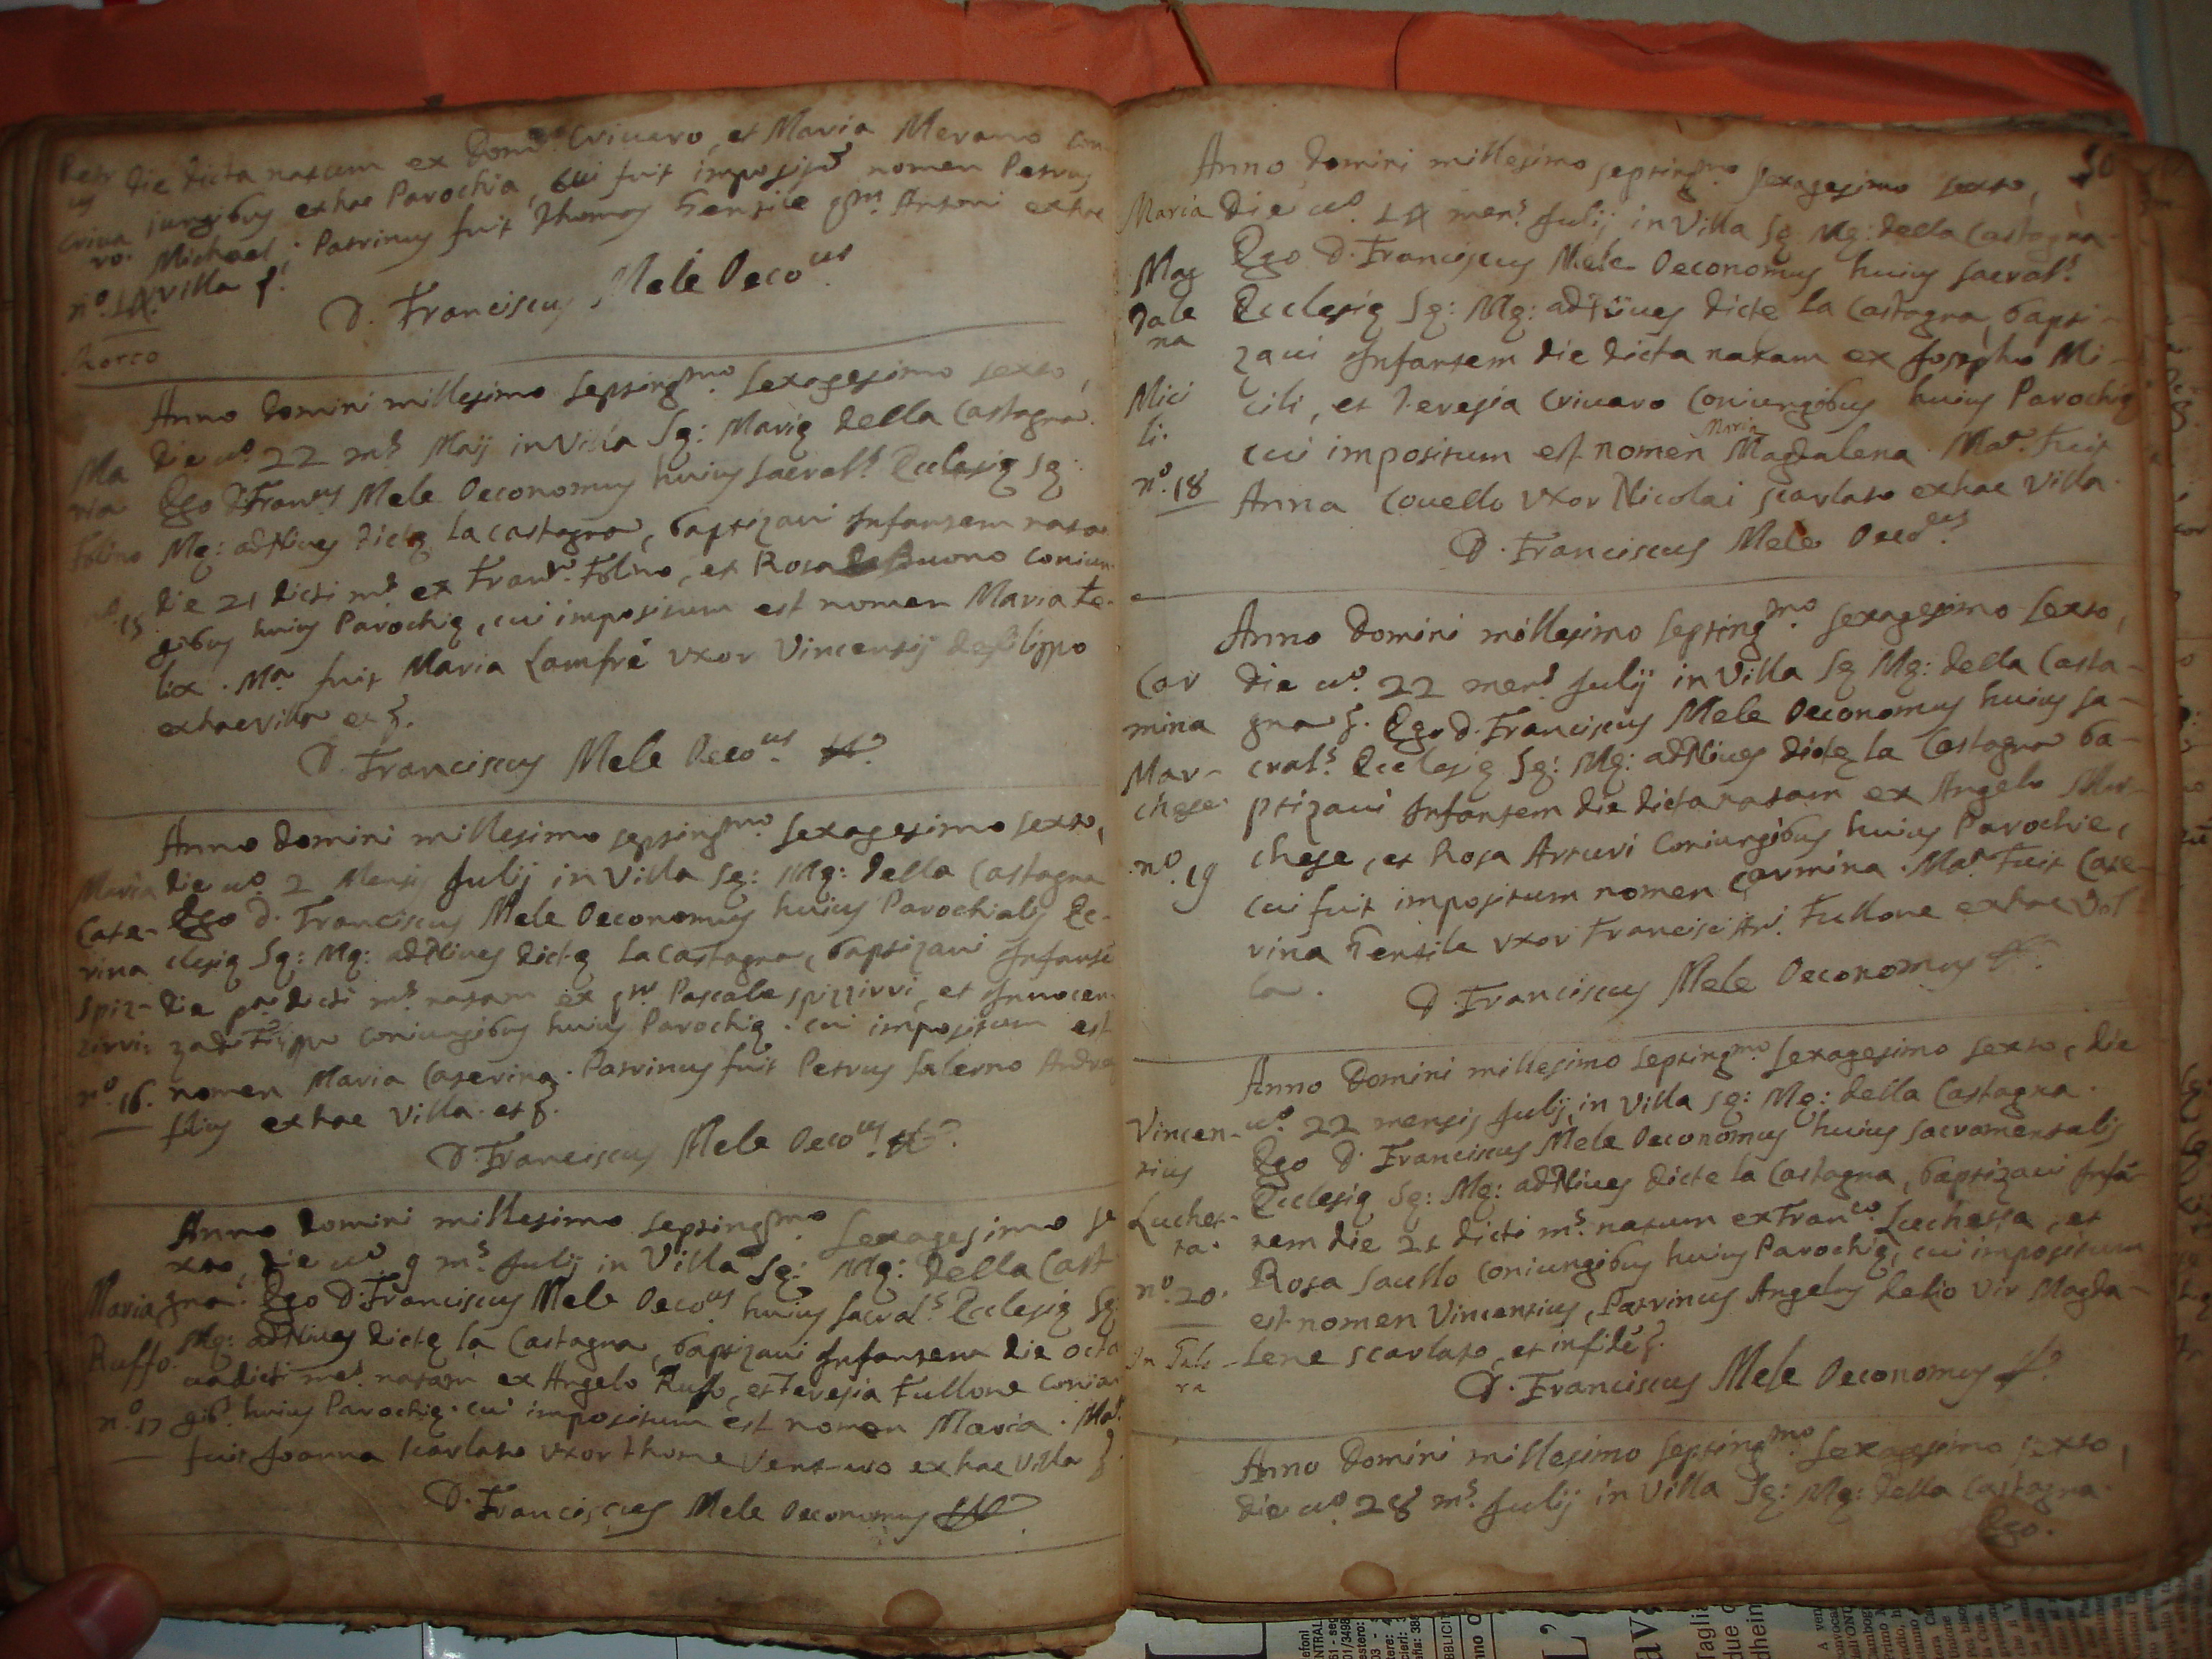 Petr
us
Criua
ro.
n.º 14.
Morto
die dicta natum ex Domco. Criuaro, et Maria Merano con
jungibus ex hac Parochia, cui fuit impositū nomen Petrus
Michael; Patrinus fuit Thomas Gentile qm. Antoni ex hac
Villa
D. Franciscus Mele Oecous.
Ma
ria
Folino
n.º 15
Anno Domini millesimo septingmo. sexagesimo sexto,
die uº. 22 ms. Maij in Villa Sę: Marię della Castagna.
Ego D. Francus Mele Oeconomus huius sacrals. Ecclesię Sę:
Mę: ad Niues dictę la Castagna, baptizaui Infantem nata
die 21 dicti ms. ex Franco. Folino, et Rosa de Buono coniun-
gibus huius Parochię, cui impositum est nomen Maria Fe-
lix. Ma. fuit Maria Lamfré vxor Vincentij de Filippo
ex hac villa et
D. Franciscus Mele Oecous.
Maria
Cate-
rina
Spiz-
zirri:
n.º 16.
Anno Domini millesimo septingmo. sexagesimo sexto,
die uº. 2 Mensis Julij in Villa Sę: Mę: della Castagna
Ego D. Franciscus Mele Oeconomus huius Parochialis Ec-
clesię Sę: Mę: ad Niues dictę la Castagna, baptizaui Infantē
die pa. dicti ms. natam ex qm. Pascale Spizzirri, et Innocen
za de Filippo coniungibus huius Parochię. cui impositum est
nomen Maria Caterina. Patrinus fuit Petrus Salerno Andreę
filius ex hac Villa. et
D. Franciscus Mele Oecous.
Maria
Ruffo.
n.º 17
Anno Domini millesimo septingmo. sexagesimo se
xto, die uº 9 ms. Julij in Villa Sę: Mę: della Casta
gna. Ego D. Franciscus Mele Oecous. huius sacrals. Ecclesię Sę
Mę: ad Niues dictę la Castagna, baptizaui Infantem die octa
ua dicti mes. natam ex Angelo Ruffo, et Teresia Fullone coniun
gibs. huius Parochię. cui impositum est nomen Maria. Mar.
fuit Joanna Scarlato vxor Thome Venturo ex hac Villa
D. Franciscus Mele Oeconomus
50
Maria
Mag
dale
na
Mici
li.
n.º 18
Anno Domini millesimo septingmo. sexagesimo sexto,
die uº. 14 mens. Julij in Villa Sę Mę: della Castagna
Ego D. Franciscus Mele Oeconomus huius sacrals.
Ecclesię Sę: Mę: ad Niues dictę la Castagna, bapti-
zaui Infantem die dicta natam ex Josepho Mi-
cili, et Teresia Criuaro coniungibus huius Parochię
cui impositum est nomen Maria Magdalena. Mar. fuit
Anna Couello vxor Nicolai Scarlato ex hac Villa.
D. Franciscus Mele Oecous.
Car
mina
Mar-
chese.
n.º 19
Anno Domini millesimo septingmo. sexagesimo sexto,
die uº. 22 mens. Julij in Villa Sę Mę: della Casta-
gna. Ego D. Franciscus Mele Oeconomus huius sa-
crals. Ecclesię Sę: Mę: ad Niues dictę la Castagna ba-
ptizaui Infantem die dicta natam ex Angelo Mar-
chese, et Rosa Arturi coniungibus huius Parochie,
cui fuit impositum nomen Carmina. Mar. fuit Cate-
rina Gentile vxor Francisci Ani. Fullone ex hac Vil
la.
D. Franciscus Mele Oeconomus
Vincen-
tius
Luches-
sa.
n.º 20.
Anno Domini millesimo septingmo. sexagesimo sexto, die
uº. 22 mensis Julij in Villa Sę: Mę: della Castagna.
Ego D. Franciscus Mele Oeconomus huius sacramentalis
Ecclesię Sę: Mę: ad Niues dictę la Castagna, baptizaui Infā-
tem die 21 dicti ms. natum ex Franco. Luchessa, et
Rosa Sauello coniungibus huius Parochię, cui impositum
est nomen Vincentius, Patrinus Angelus Lelio vir Magda-
lene Scarlato, et in fide
D. Franciscus Mele Oeconomus
Anno Domini millesimo septingmo. sexagesimo sexto,
die uº. 28 ms. Julij in Villa Sę: Mę: della Castagna.
Ego.